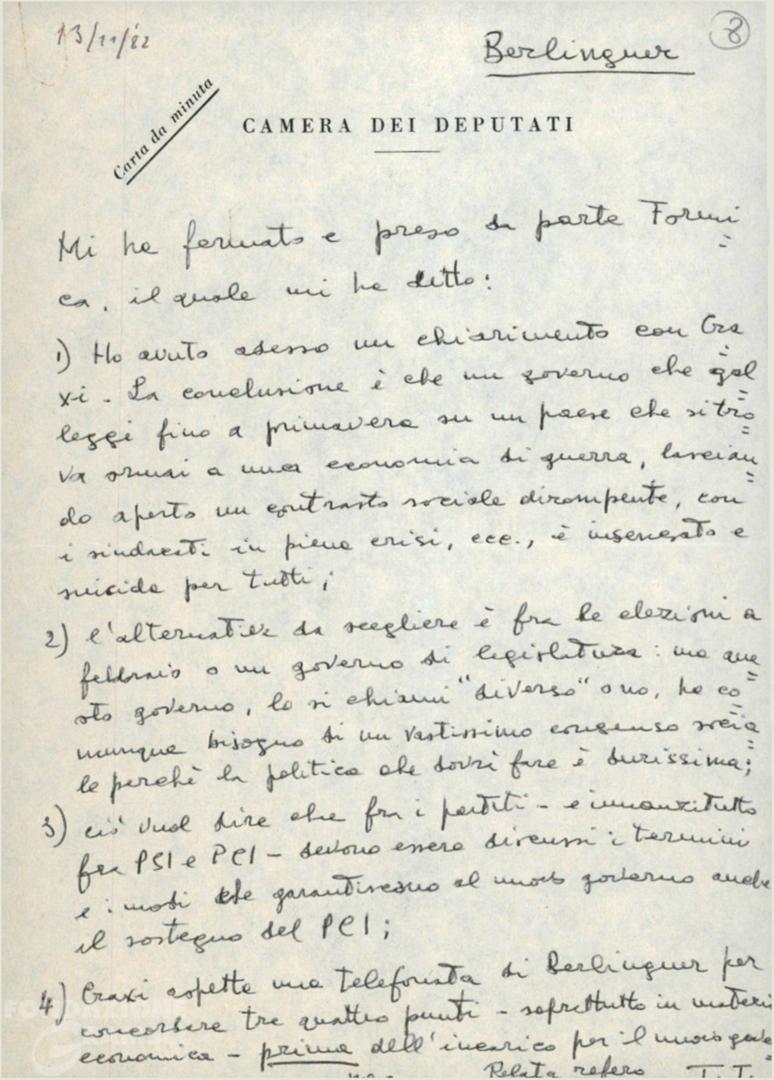 13/11/82
Berlinguer
8
Carta da minuta
CAMERA DEI DEPUTATI
Mi ha fermato e preso da parte Formi=
ca, il quale mi ha detto:
1) Ho avuto adesso un chiarimento con Cra=
xi. La conclusione è che un governo che gal=
leggi fino a primavera su un paese che si tro=
va ormai a una economia di guerra, lascian=
do aperto un contrasto sociale dirompente, con
i sindacati in piena crisi, ecc., è insensato e
suicida per tutti;
2) l'alternativa da scegliere è fra le elezioni a
febbraio o un governo di legislatura: ma que=
sto governo, lo si chiami "diverso" o no, ha co=
munque bisogno di un vastissimo consenso socia=
le perchè la politica che dovrà fare è durissima;
3) ciò vuol dire che fra i partiti - e innanzitutto
fra PSI e PCI - devono essere discussi i termini
e i modi che garantiscano al nuovo governo anche
il sostegno del PCI;
4) Craxi aspetta una telefonata di Berlinguer per
concordare tre quattro punti - soprattutto in materia
economica - prima dell'incarico per il nuovo gove=
Relata refero T.T.